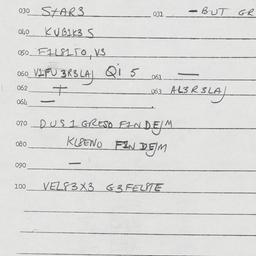 030 STAR3 031 — BUT GR
040 KUBIK3 S
050 F1L81TO, V3
060 V1FU 3R3LAJ Qi 5 061 —
062 † 063 AL3R3LAJ
064 —
070 DUS 1 GRESO F1NDEJM
080 KLBENO F1NDEJM
090 —
100 VEL83X3 G3FEUTE